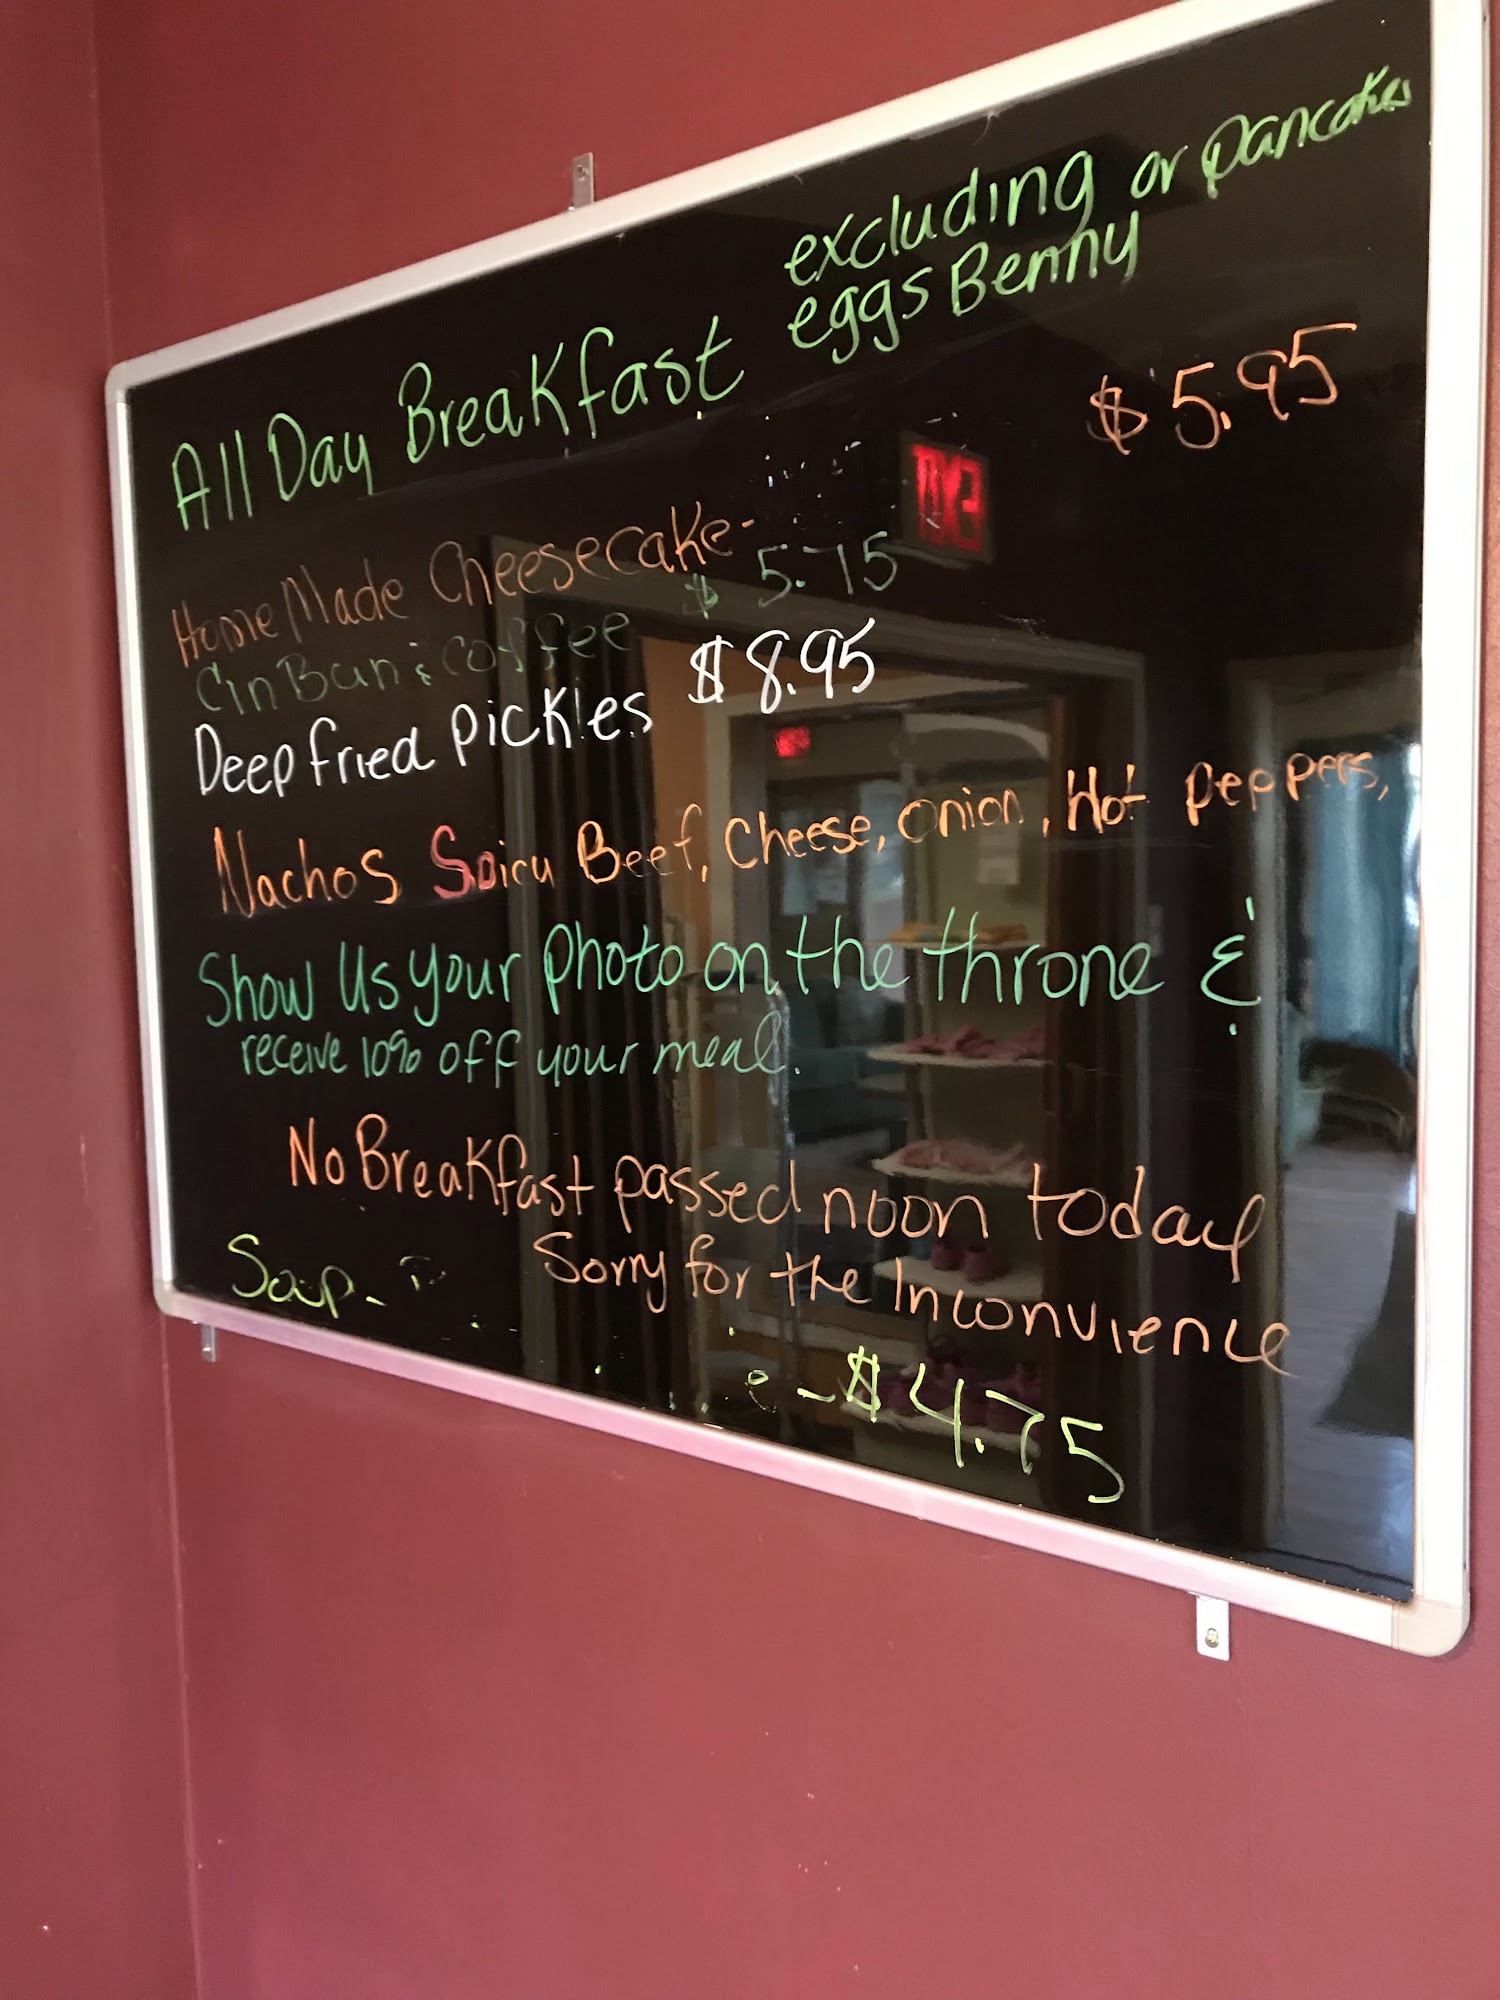 All Day Breakfast excluding or pancakes
eggs Benny
Home Made Cheesecake - $5.95
Cin Bun & coffee $5.75
Deep fried pickles $8.95
Nachos Spicy Beef, Cheese, onion, Hot peppers,
Show us your photo on the throne &
receive 10% off your meal.
No Breakfast passed noon today
Sorry for the Inconvience
Soup -
- $4.75